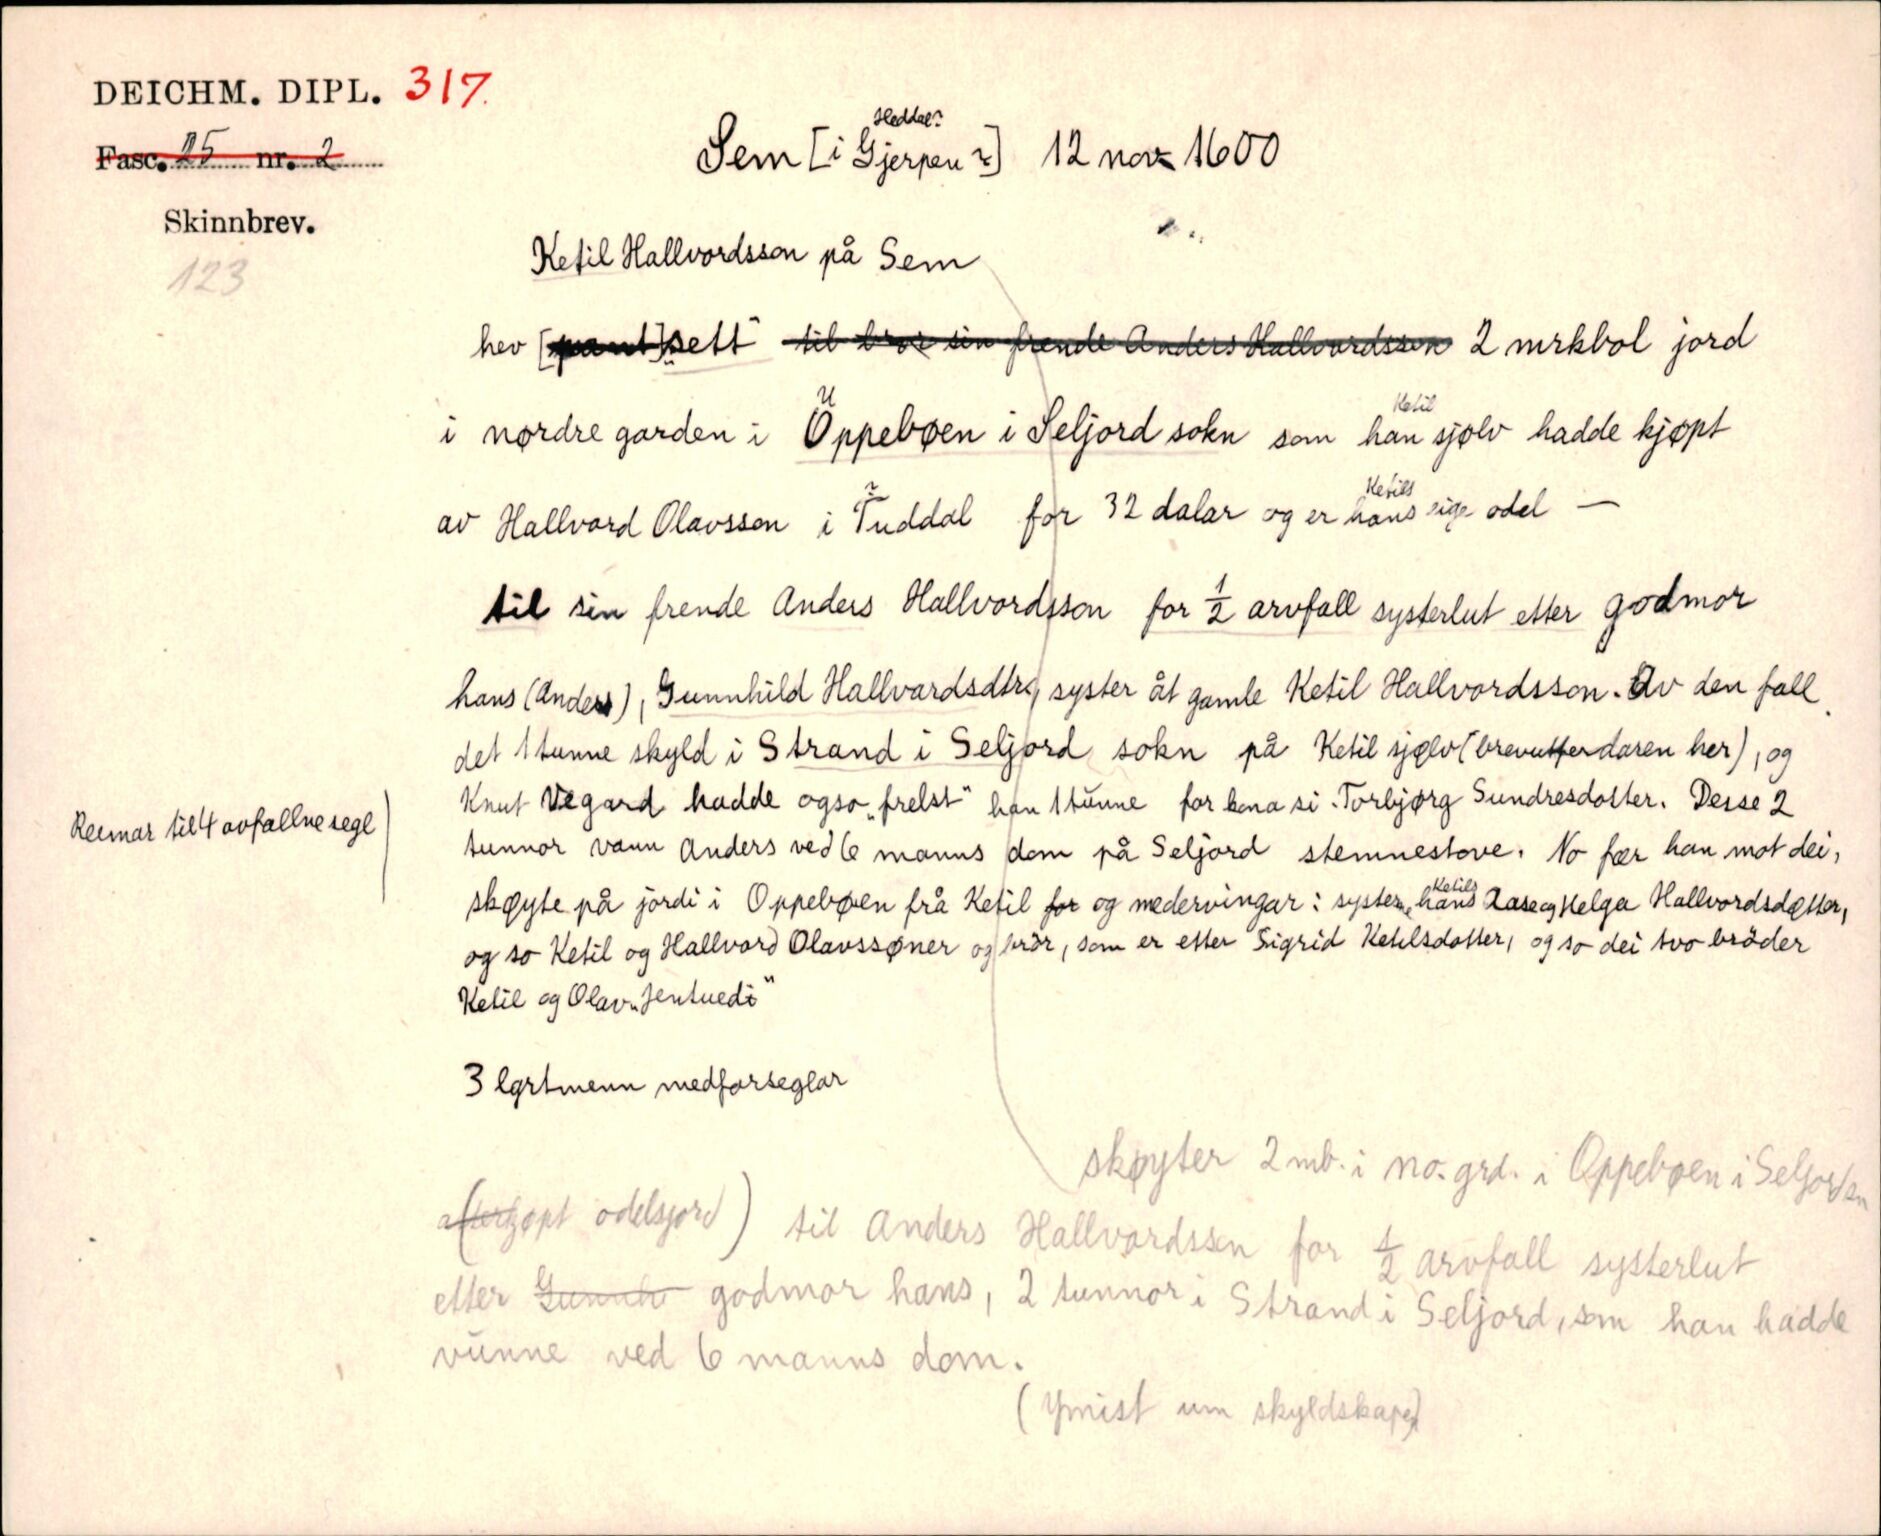 DEICHM. DIPL. 317.
Fasc. 25 nr. 2
Skinnbrev.
123
Heddal?
Sem [i Gjerpen?] 12 nov 1600
Ketil Hallvordsson på Sem
hev [pant]"sett" til bror sin frende Anders Hallvardsson 2 mrkbol jord
U Ketil
i nørdre garden i Oppebøen i Seljord sokn som han sjølv hadde kjøpt
? Ketils
av Hallvord Olavsson i Tuddal for 32 dalar og er hans eige odel —
til sin frende Anders Hallvordsson for ½ arvfall systerlut etter godmor
hans (Anders), Gunnhild Hallvardsdtr., syster åt gamle Ketil Hallvordsson. Av den fall
det 1 tunne skyld i Strand i Seljord sokn på Ketil sjølv (brevutferdaren her), og
Knut Vegard hadde ogso „frelst" han 1 tunne for kona si Torbjørg Sundresdotter. Desse 2
tunnor vann Anders ved 6 manns dom på Seljord stemnestove. No fær han mot dei,
Ketils
skøyte på jordi i Oppebøen frå Ketil for og medervingar: systerne hans Aase og Helga Hallvordsdøtter,
og so Ketil og Hallvord Olavssøner og brør, som er etter Sigrid Ketilsdotter, og so dei tvo brøder
Ketil og Olav „Jentuedi"
3 lgrtmenn medforseglar
Reimar til 4 avfallne segl
skøyter 2 mb. i no. grd. i Oppebøen i Seljord sn
(kjøpt odelsjord) til Anders Hallvordssen for ½ arvfall systerlut
etter Gunnhi godmor hans, 2 tunnor i Strand i Seljord, som han hadde
vunne ved 6 manns dom.
(Ymist um skyldskapen)